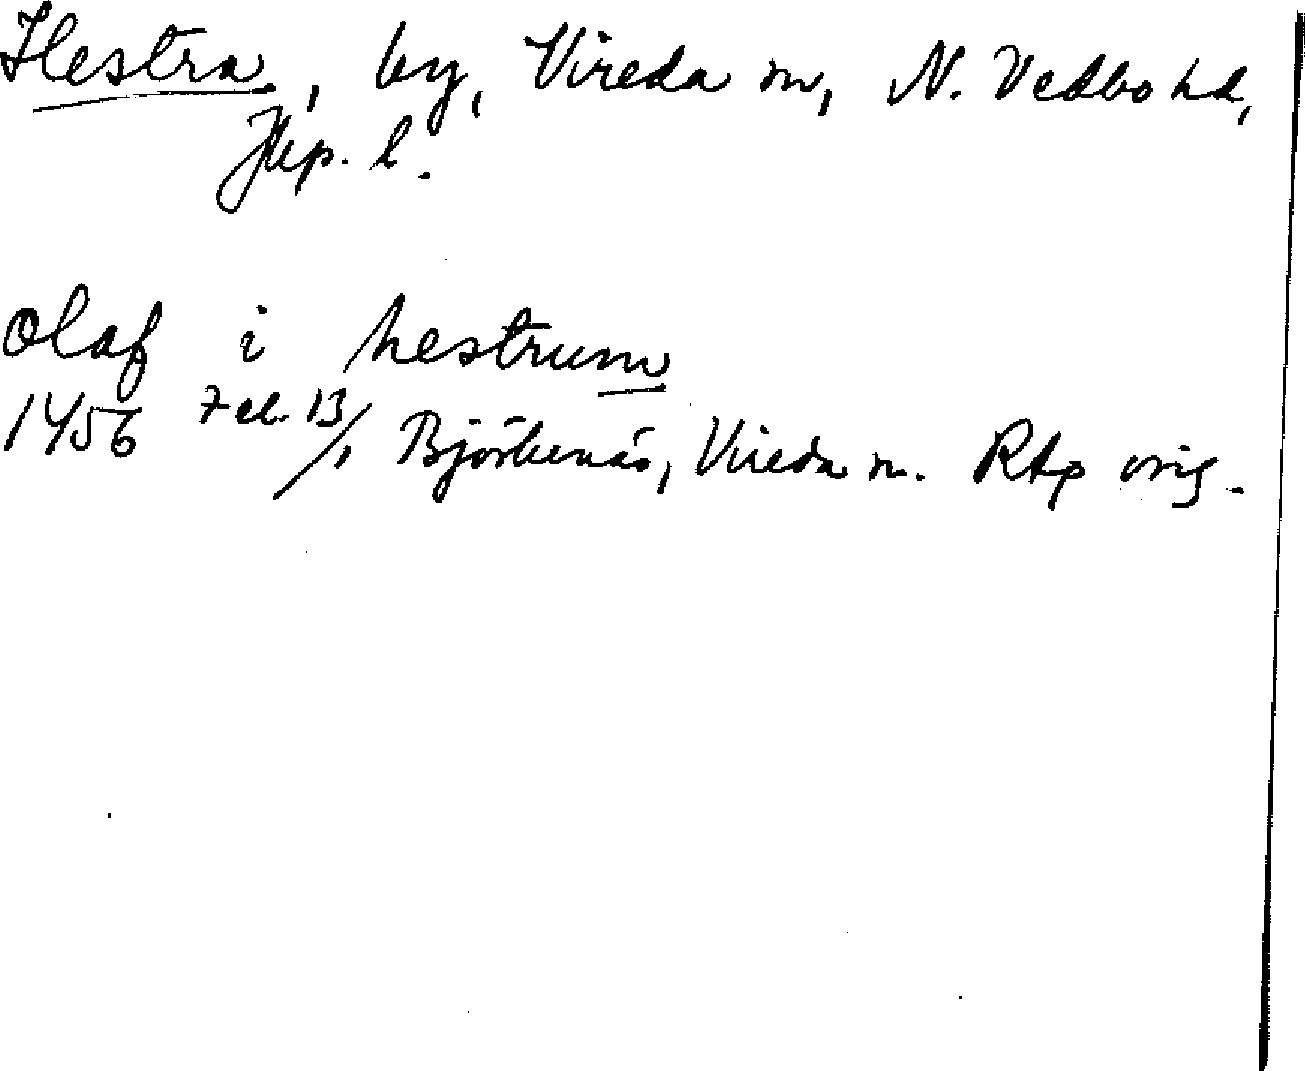 Hestra, by, Vireda sn, N. Vedbo hd,
Jkp. l.
Olaf i hestrum
1456 Feb. 13/, Björkenäs, Vireda sn. RAp orig.